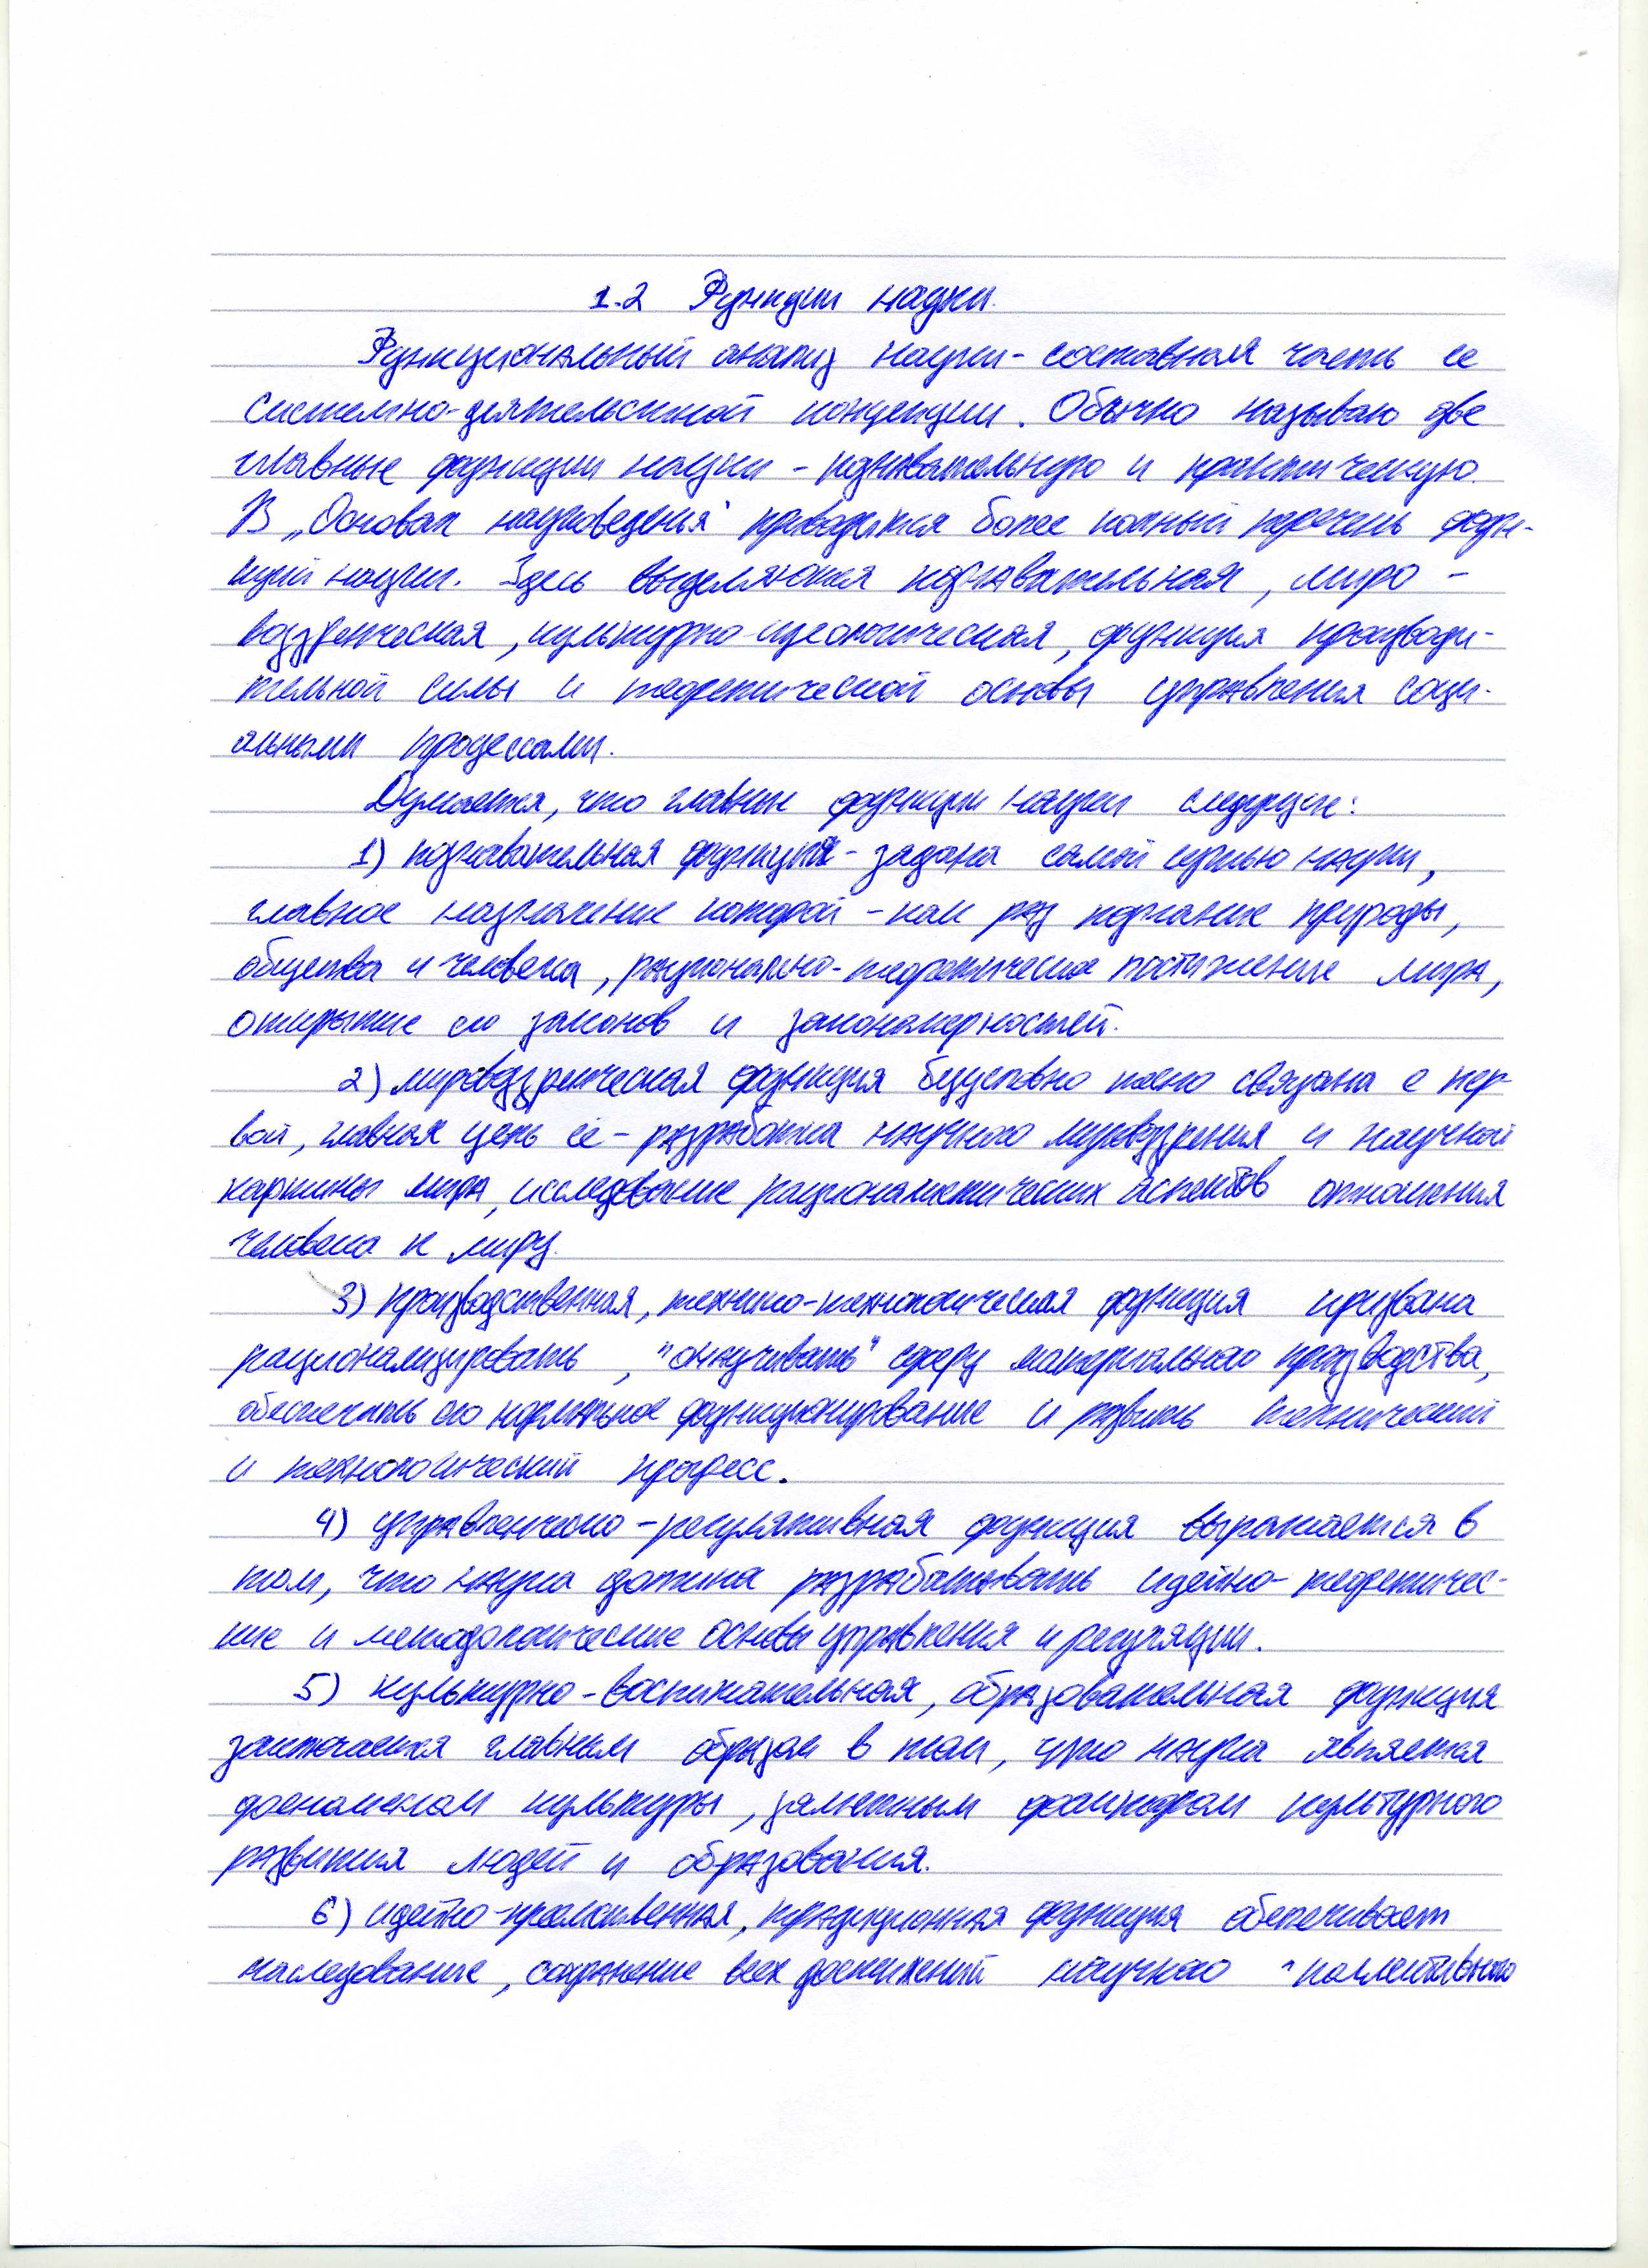 1.2 Функции науки.
Функциональный анализ науки - составная часть ее
системно-деятельностной концепции. Обычно называю две
главные функции науки - познавательную и практическую.
В „Основах науковеденья" приводится более полный перечень функ-
ций науки. Здесь выделяются познавательная, миро-
воззренческая, культурно-идеологическая, функция производи-
тельной силы и теоретической основы управления соци-
альными процессами.
Думается, что главные функции науки следующие:
1) познавательная функция - задана самой сутью науки,
главное назначение которой - как раз познание природы,
общества и человека, рационально-теоретическое постижение мира,
открытие его законов и закономерностей.
2) мировоззренческая функция безусловно тесно связана с пер-
вой, главная цель её - разработка научного мировоззрения и научной
картины мира, исследование рационалистических аспектов отношения
человека к миру.
3) производственная, технико-технологическая функция призвана
рационализировать, "онаучивать" сферу материального производства,
обеспечить его нормальное функционирование и развить технический
и технологический прогресс.
4) управленческо-регулятивная функция выражается в
том, что наука должна разрабатывать идейно-теоретичес-
кие и методологические основы управления и регуляции.
5) культурно-воспитательная, образовательная функция
заключается главным образом в том, что наука является
феноменом культуры, заметным фактором культурного
развития людей и образования.
6) идейно-преемственная, традиционная функция обеспечивает
наследование, сохранение всех достижений научного "коллективного